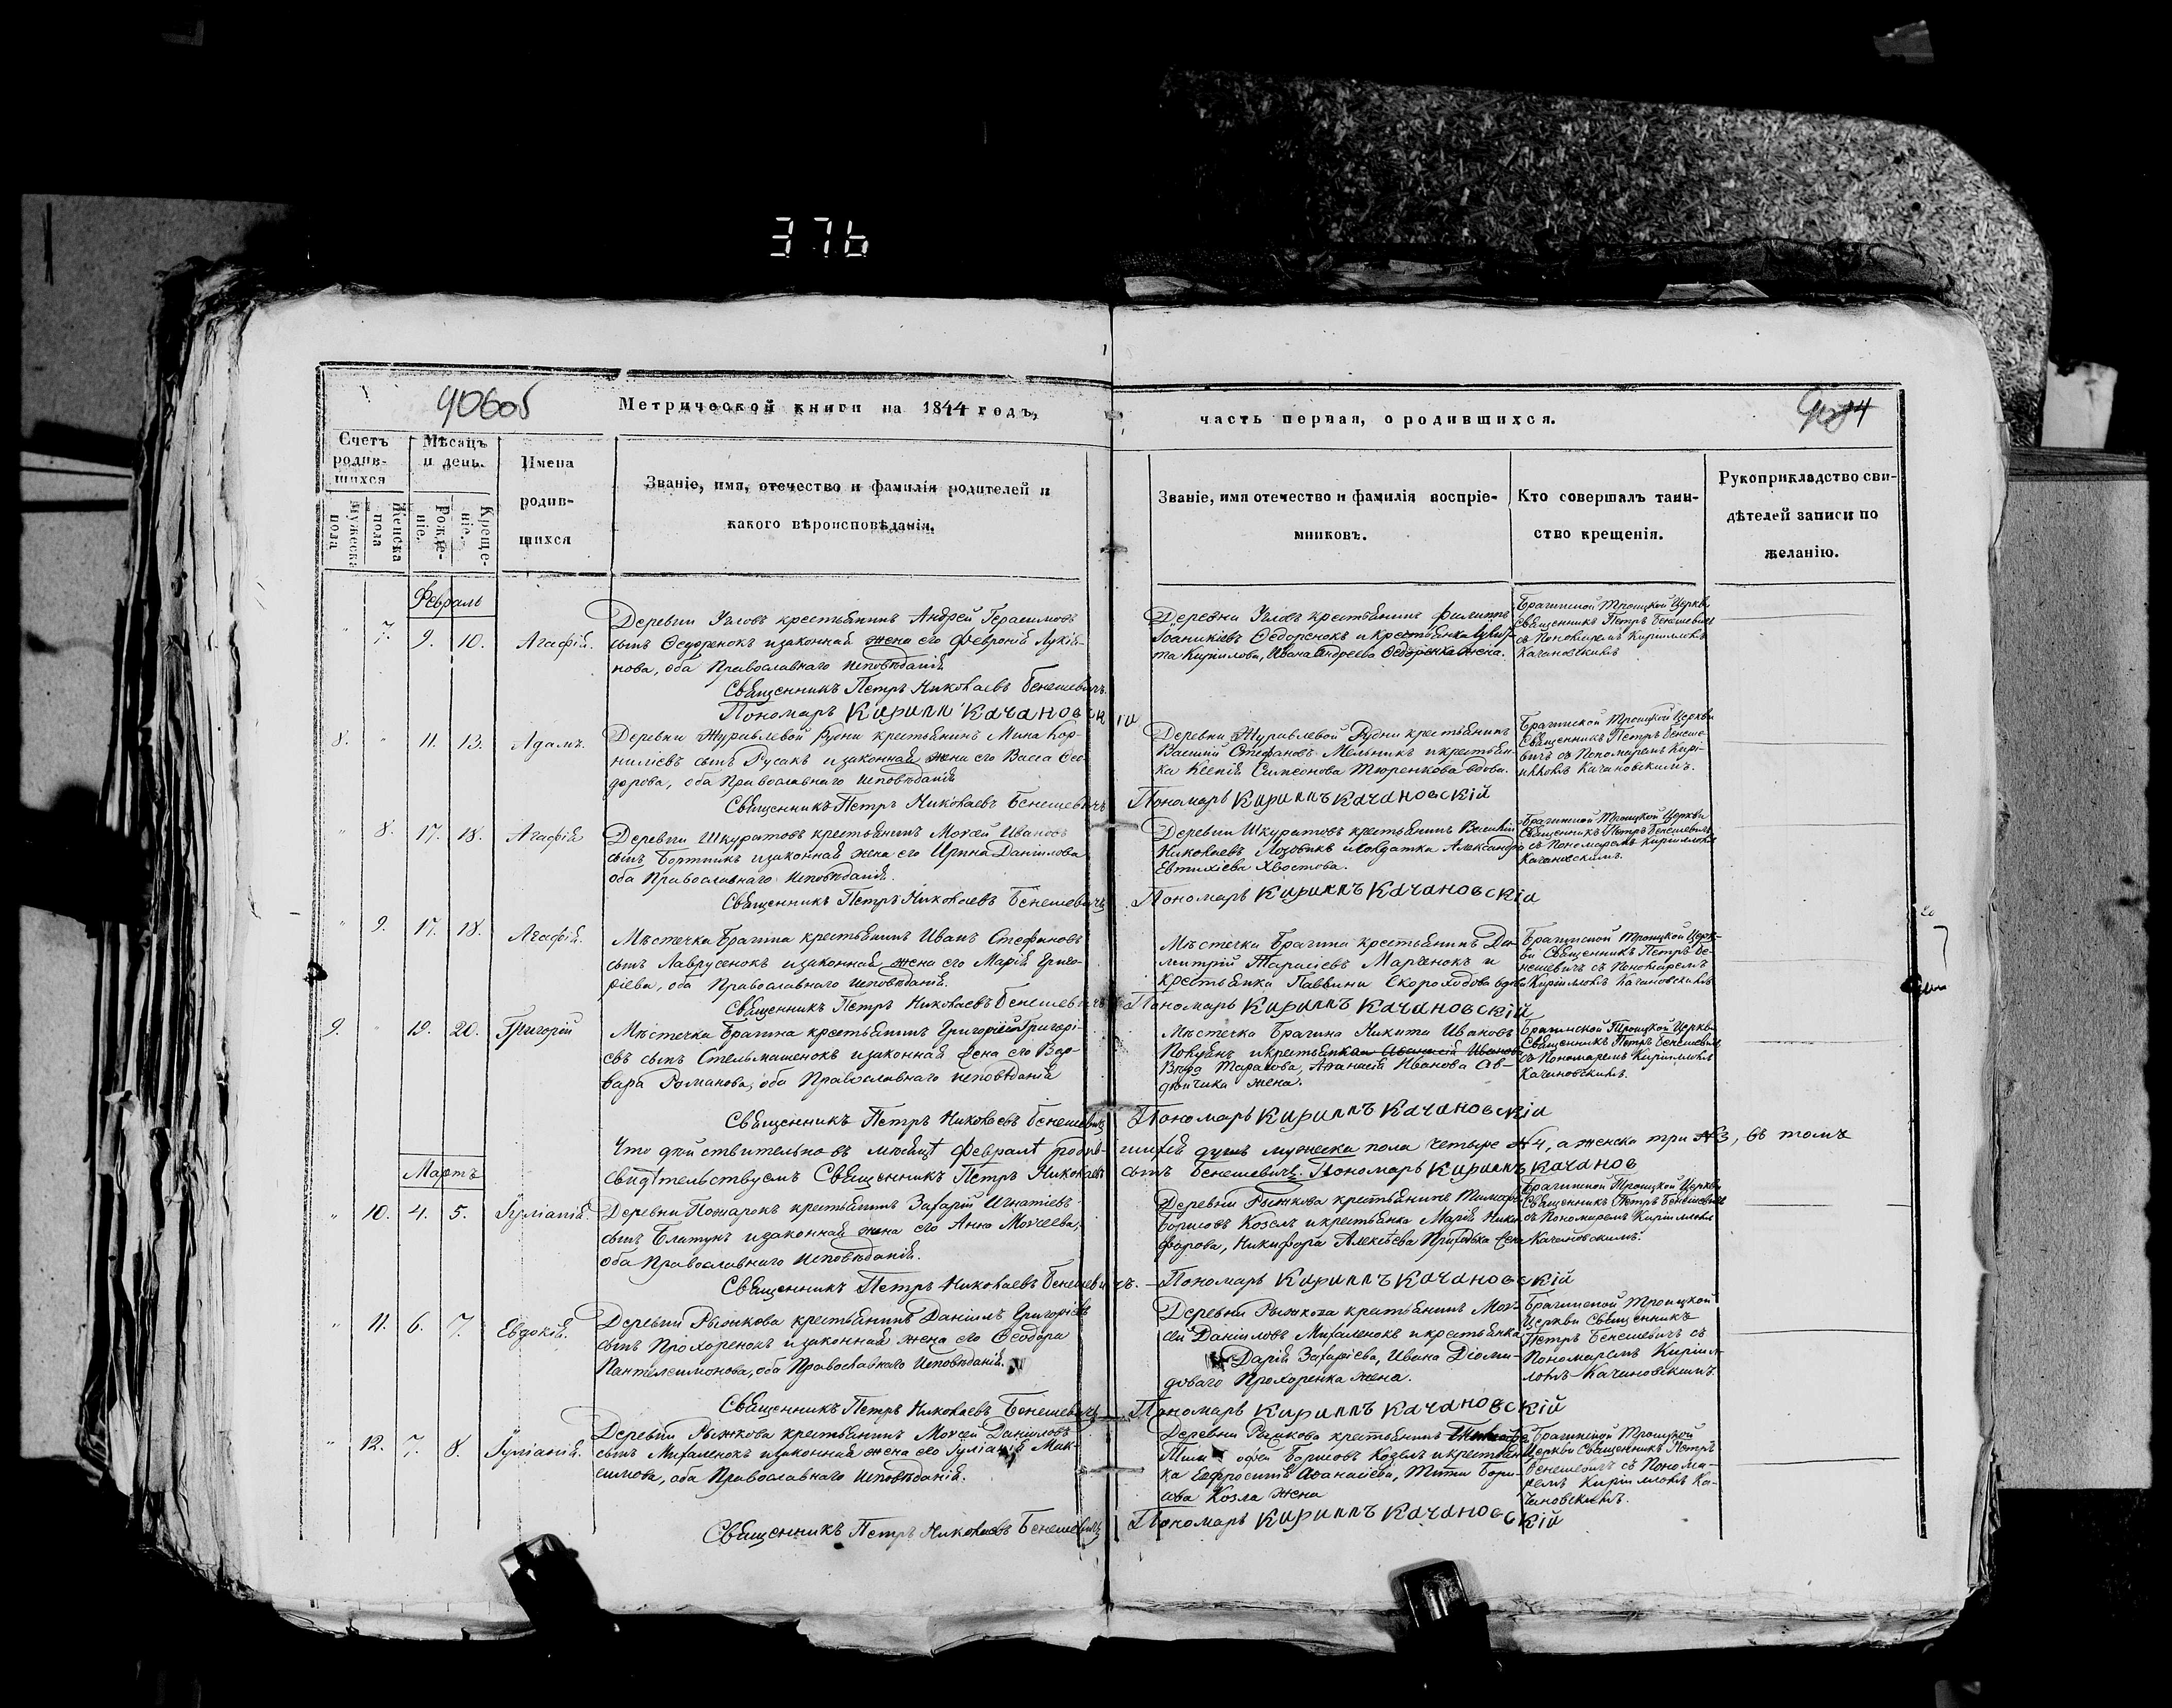 376
406об
Метрической книги на 1844 годъ,
часть первая, о родившихся.
Счетъ родив-
шихся
Мѣсяцъ
и день.
Мужеска пола
Женска пола
Рожде-
ніе.
Креще-
ніе.
Имена
родив-
шихся
Званіе, имя, отечество и фамилія родителей и
какого вѣроисповѣданія.
Званіе, имя отечество и фамилія воспріе-
мниковъ.
Кто совершалъ таин-
ство крещенія.
Рукоприкладство сви-
дѣтелей записи по
желанію.
Февраль
" 7. 9. 10. Агафія.
Деревни Угловъ крестьянинъ Андрей Герасимовъ
сынъ Ѳедоренокъ и законная жена его Февронія Лукія-
нова, оба Православнаго исповѣданія
Священникъ Петръ Николаевъ Бенешевичъ.
Пономарь Кирилл Качановскій
Деревни Угловъ крестьянинъ Филиппъ
Іоаникіевъ Ѳедоренокъ и крестьянка
Кирилова, Ивана Андреева Ѳедоренка жена.
Брагинской Троицкой Церкви
Священникъ Петръ Бенешевичъ
съ Пономаремъ Кирилломъ
Качановскимъ
8. " 11. 13. Адамъ.
Деревни Журавлевой Рудни крестьянинъ Мина Кор-
нилиевъ сынъ Русакъ и законная жена его Васса Ѳео-
дорова, оба Православнаго исповѣданія
Священникъ Петръ Николаевъ Бенешевичъ
Деревни Журавлевой Рудни крестьянинъ
Василій Стефановъ Мельникъ и крестьян-
ка Ксенія Симеонова Тюренкова вдова.
Пономарь Кириллъ Качановскій
Брагинской Троицкой Церкви
Священникъ Петръ Бенеше-
вичъ съ Пономаремъ Кири-
лломъ Качановскимъ.
" 8. 17. 18. Агафія
Деревни Шкуратовъ крестьянинъ Моисей Ивановъ
сынъ Бортникъ и законная жена его Ирина Даніилова
оба Православнаго исповѣданія.
Священникъ Петръ Николаевъ Бенешевичъ
Деревни Шкуратовъ крестьянинъ Василій
Николаевъ Лозовикъ и солдатка Александра
Евтихіева Хвостова.
Пономарь Кириллъ Качановскій
Брагинской Троицкой Церкви
Священникъ Петръ Бенешевичъ
съ Пономаремъ Кирилломъ
Качановскимъ.
" 9. 17. 18. Агафія.
Мѣстечка Брагина крестьянинъ Иванъ Стефановъ
сынъ Лаврусенокъ и законная жена его Марія Григо-
ріева, оба Православнаго исповѣданія.
Священникъ Петръ Николаевъ Бенешевичъ
Мѣстечка Брагина крестьянинъ Ди-
митрій Тарасіевъ Марченокъ и
крестьянка Павлина Скороходова вдова
Пономарь Кириллъ Качановскій
Брагинской Троицкой Церк-
ви Священникъ Петръ Бе-
нешевичъ съ Пономаремъ
Кирилломъ Качановскимъ
9. " 19. 20. Григорій
Мѣстечка Брагина крестьянинъ Григорій Григорі-
евъ сынъ Стельмашенокъ и законная жена его Вар-
вара Романова, оба Православнаго исповѣданія
Священникъ Петръ Николаевъ Бенешевичъ
Мѣстечка Брагина Никита Ивановъ
и крестьянка Аѳанасія Иванова
Тарасова, Аѳанасія Иванова Ав-
дѣйчика жена.
Пономарь Кириллъ Качановскій
Брагинской Троицкой Церкви
Священникъ Петръ Бенешевичъ
съ Пономаремъ Кирилломъ
Качановскимъ.
Что дѣйствительно въ мѣсяцѣ Февралѣ родив-
шихся душъ мужеска пола четыре №4, а женска три №3, въ томъ
свидѣтельствуемъ Священникъ Петръ Николаевъ
сынъ Бенешевичъ. Пономарь Кириллъ Качанов
Мартъ
" 10. 4. 5. Іуліанія.
Деревни Пожарокъ крестьянинъ Захарій Игнатіевъ
сынъ Блитунъ и законная жена его Анна Моисеева,
оба Православнаго исповѣданія.
Священникъ Петръ Николаевъ Бенешевичъ.
Деревни Рыжкова крестьянинъ
Борисовъ Козелъ и крестьянка Марія Ники-
форова, Никифора Алексѣева жена
Пономарь Кириллъ Качановскій
Брагинской Троицкой Церкви
Священникъ Петръ Бенешевичъ
съ Пономаремъ Кирилломъ
Качановскимъ.
" 11. 6. 7. Евдокія.
Деревни Рыжкова крестьянинъ Даніилъ Григоріевъ
сынъ Прохоренокъ и законная жена его Ѳеодора
Пантелеимонова, оба Православнаго исповѣданія.
Священникъ Петръ Николаевъ Бенешевичъ
Деревни Рыжкова крестьянинъ Мои-
сей Даніиловъ Михаленокъ и крестьянка
Дарія Захаріева, Ивана Діоми-
доваго Прохоренка жена.
Пономарь Кириллъ Качановскій
Брагинской Троицкой
Церкви Священникъ
Петръ Бенешевичъ съ
Пономаремъ Кирил-
ломъ Качановскимъ.
" 12. 7. 8. Іуліанія.
Деревни Рыжкова крестьянинъ Моисей Даніиловъ
сынъ Михаленокъ и законная жена его Іуліанія Мак-
симова, оба Православнаго исповѣданія.
Священникъ Петръ Николаевъ Бенешевичъ
Деревни Рыжкова крестьянинъ
Тимофей Борисовъ Козелъ и крестьян-
ка Евфросинія Аѳанасіева, Тита Бори-
сова Козла жена
Пономарь Кириллъ Качановскій
Брагинской Троицкой
Церкви Священникъ Петръ
Бенешевичъ съ Понома-
ремъ Кирилломъ Ка-
чановскимъ.